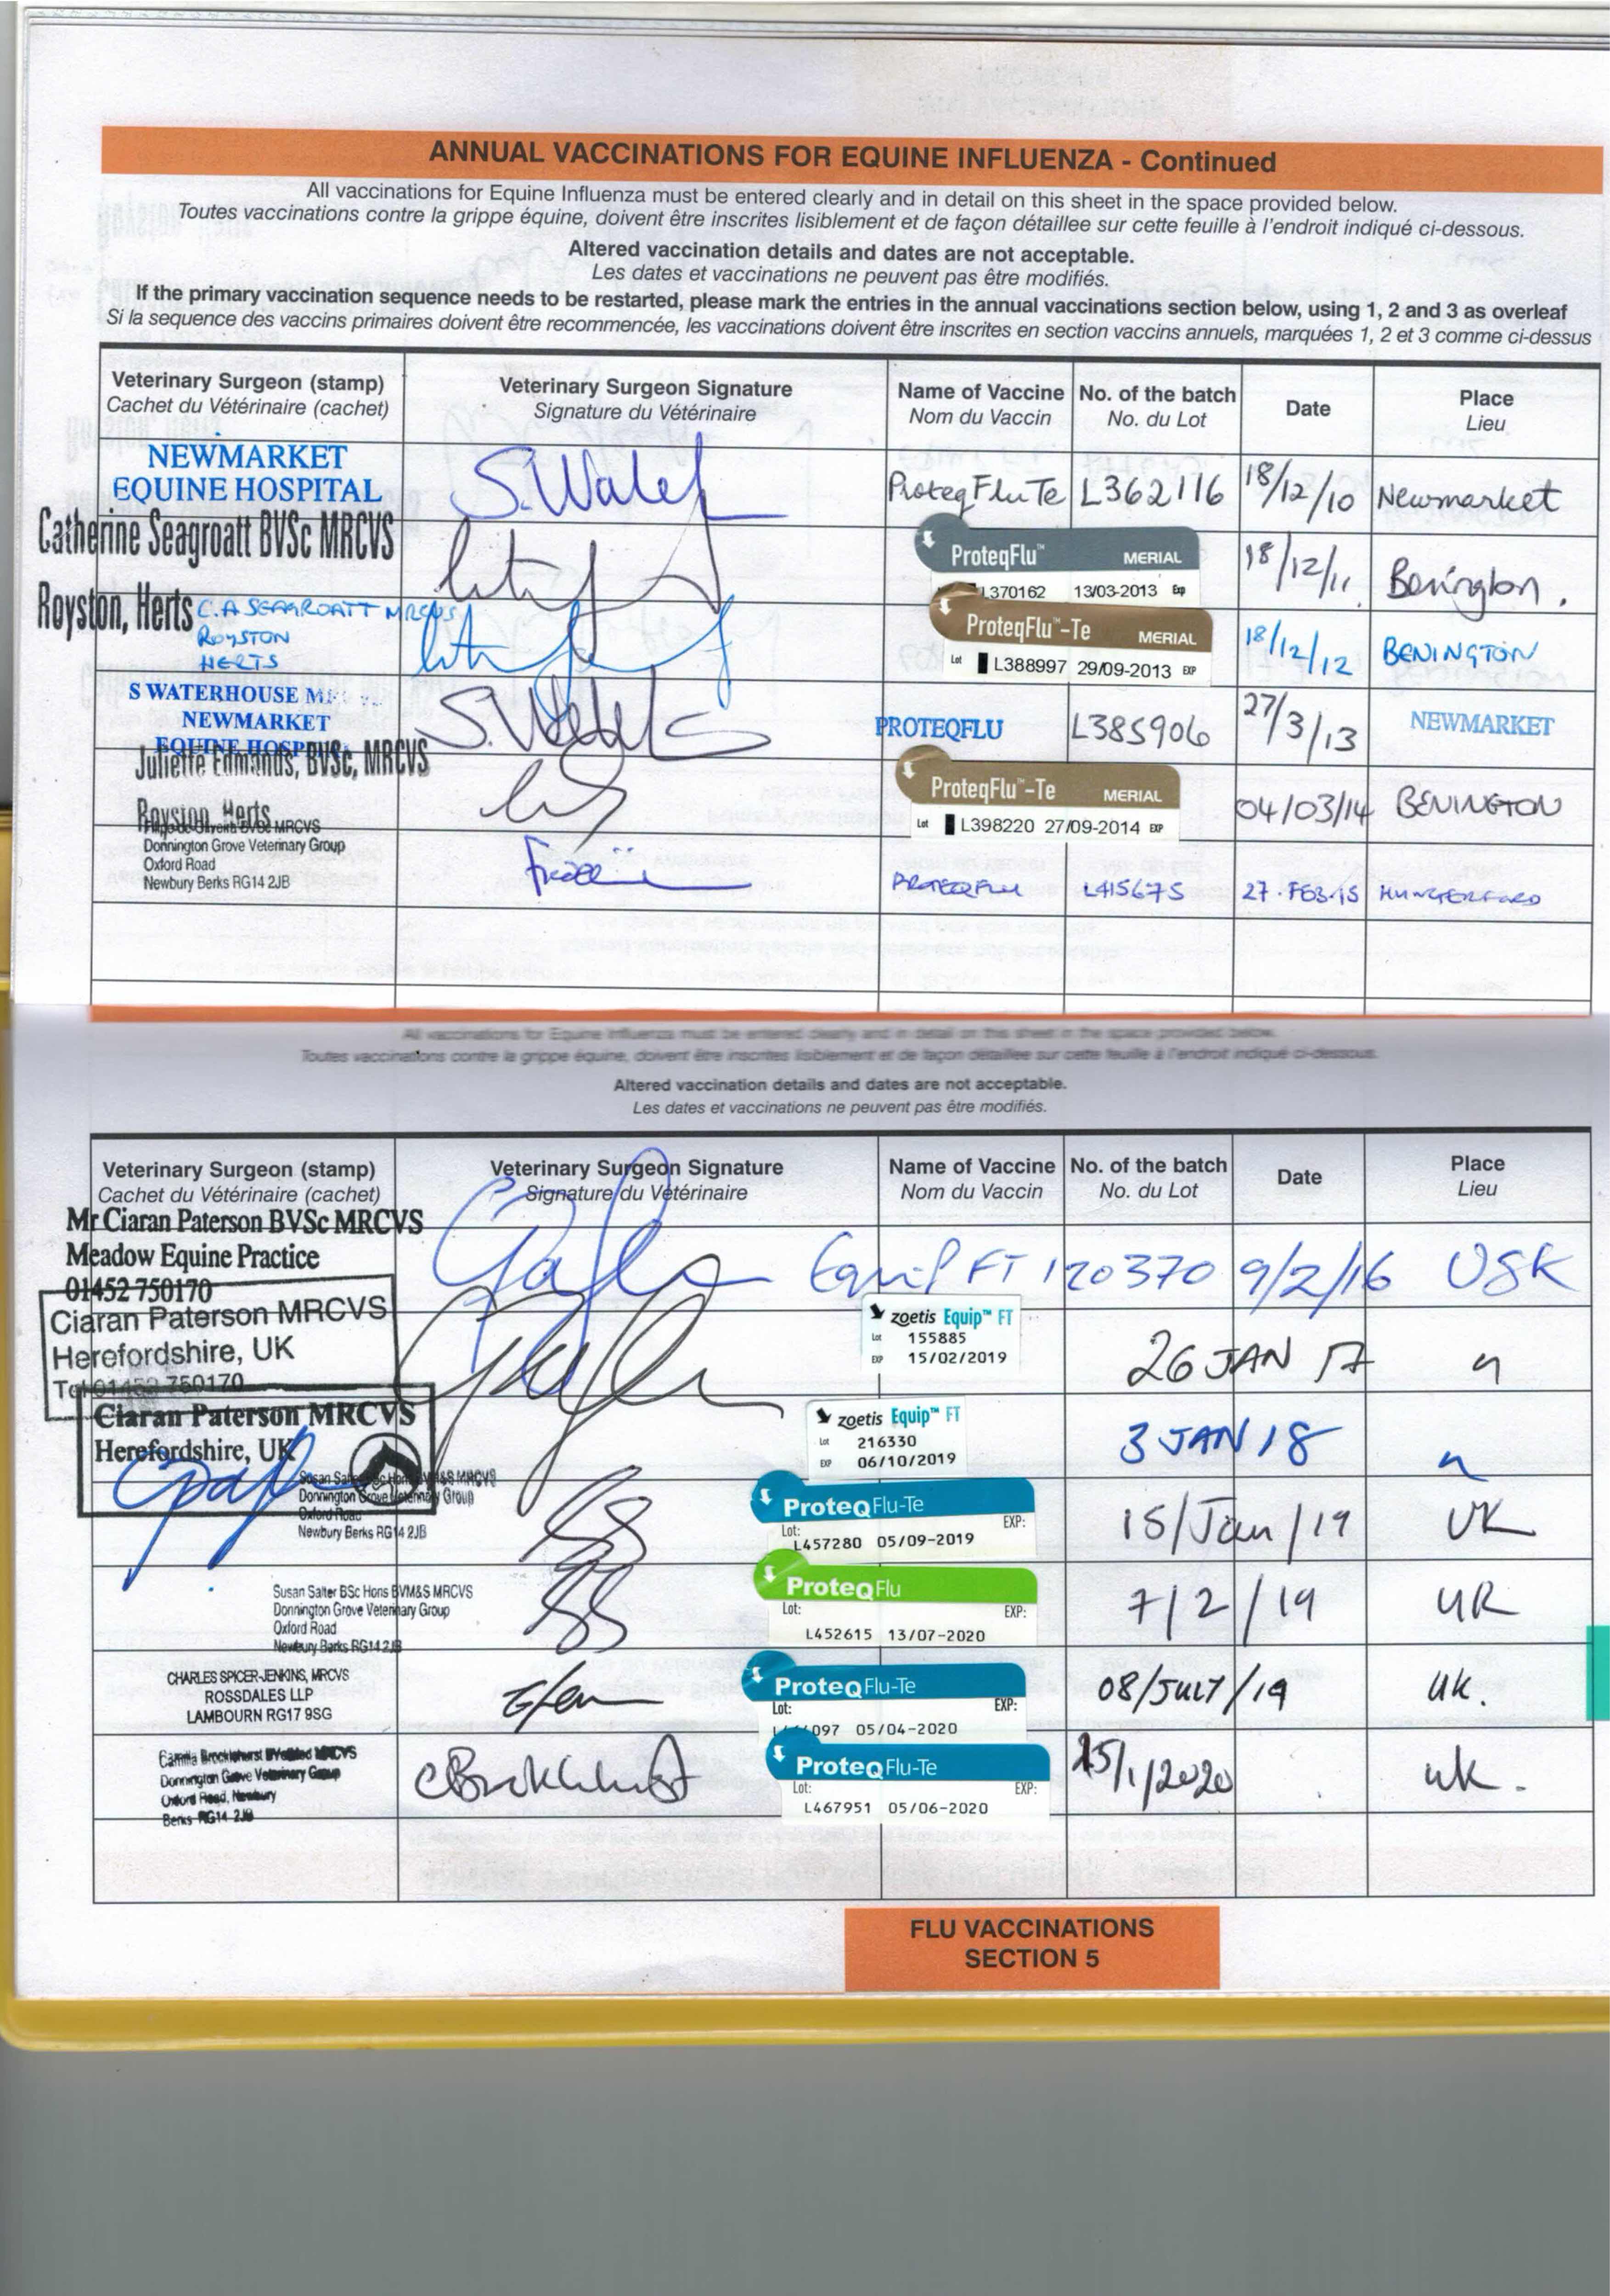 ANNUAL VACCINATIONS FOR EQUINE INFLUENZA - Continued
All vaccinations for Equine Influenza must be entered clearly and in detail on this sheet in the space provided below.
Toutes vaccinations contre la grippe équine, doivent être inscrites lisiblement et de façon détaillee sur cette feuille à l'endroit indiqué ci-dessous.
Altered vaccination details and dates are not acceptable.
Les dates et vaccinations ne peuvent pas être modifiés.
If the primary vaccination sequence needs to be restarted, please mark the entries in the annual vaccinations section below, using 1, 2 and 3 as overleaf
Si la sequence des vaccins primaires doivent être recommencée, les vaccinations doivent être inscrites en section vaccins annuels, marquées 1, 2 et 3 comme ci-dessus
Veterinary Surgeon (stamp) Veterinary Surgeon Signature Name of Vaccine No. of the batch Date Place
Cachet du Vétérinaire (cachet) Signature du Vétérinaire Nom du Vaccin No. du Lot Lieu
NEWMARKET
EQUINE HOSPITAL ProteqFluTe L362116 18/12/10 Newmarket
Catherine Seagroatt BVSc MRCVS
ProteqFlu™ MERIAL 18/12/11 Benington.
L370162 13/03-2013 Exp
Royston, Herts C.A SEAGROATT MRCVS
ROYSTON
HERTS
ProteqFlu™-Te MERIAL 18/12/12 BENINGTON
Lot L388997 29/09-2013 EXP
S WATERHOUSE
NEWMARKET
EQUINE HOSP PROTEQFLU L385906 27/3/13 NEWMARKET
Juliette Edmands, BVSc, MRCVS
Royston, Herts
ProteqFlu™-Te MERIAL 04/03/14 BENINGTON
Lot L398220 27/09-2014 EXP
BVSc MRCVS
Donnington Grove Veterinary Group
Oxford Road
Newbury Berks RG14 2JB PROTEQFLU L415675 27.FEB.15 HUNGERFORD
All vaccinations for Equine Influenza must be entered clearly and in detail on this sheet in the space provided below.
Toutes vaccinations contre la grippe équine, doivent être inscrites lisiblement et de façon détaillee sur cette feuille à l'endroit indiqué ci-dessous.
Altered vaccination details and dates are not acceptable.
Les dates et vaccinations ne peuvent pas être modifiés.
Veterinary Surgeon (stamp) Veterinary Surgeon Signature Name of Vaccine No. of the batch Date Place
Cachet du Vétérinaire (cachet) Signature du Vétérinaire Nom du Vaccin No. du Lot Lieu
Mr Ciaran Paterson BVSc MRCVS
Meadow Equine Practice
01452 750170
Equip FT 120370 9/2/16 USK
Ciaran Paterson MRCVS
Herefordshire, UK
Tel 01452 750170
zoetis Equip™ FT
Lot 155885
EXP 15/02/2019
26 JAN 17 "
Ciaran Paterson MRCVS
Herefordshire, UK
zoetis Equip™ FT
Lot 216330
EXP 06/10/2019
3 JAN 18 "
Donnington Grove Veterinary Group
Oxford Road
Newbury Berks RG14 2JB
ProteqFlu-Te
Lot: EXP:
L457280 05/09-2019
15/Jan/19 UK
Susan Salter BSc Hons BVM&S MRCVS
Donnington Grove Veterinary Group
Oxford Road
Newbury Berks RG14 2JB
ProteqFlu
Lot: EXP:
L452615 13/07-2020
7/2/19 UK
CHARLES SPICER-JENKINS, MRCVS
ROSSDALES LLP
LAMBOURN RG17 9SG
ProteqFlu-Te
Lot: EXP:
097 05/04-2020
08/JULY/19 UK.
Camilla Brocklehurst BVetMed MRCVS
Donnington Grove Veterinary Group
Oxford Road, Newbury
Berks RG14 2JB
ProteqFlu-Te
Lot: EXP:
L467951 05/06-2020
15/1/2020 UK.
FLU VACCINATIONS
SECTION 5